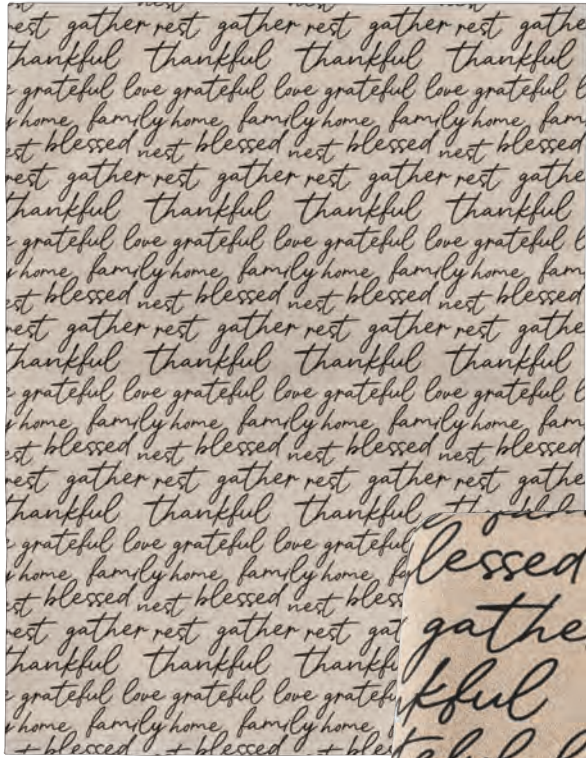 rest gather rest gather rest gather rest gathe
thankful thankful thankful thankful
grateful love grateful love grateful love grateful
home family home family home family home fam
est blessed nest blessed nest blessed nest blessed
rest gather rest gather rest gather rest gathe
thankful thankful thankful thankful
grateful love grateful love grateful love grateful
home family home family home family home fam
est blessed nest blessed nest blessed nest blessed
rest gather rest gather rest gather rest gathe
thankful thankful thankful thankful
grateful love grateful love grateful love grateful
home family home family home family home fam
est blessed nest blessed nest blessed nest blessed
rest gather rest gather rest gather rest gathe
thankful thankful thankful
grateful love grateful love grateful
home family home family home fa
est blessed nest blessed nest bless
rest gather rest gather rest gat
thankful thankful thankf
grateful love grateful love gratefu
home family home family home
blessed nest blessed nest bles
lessed
gathe
kful